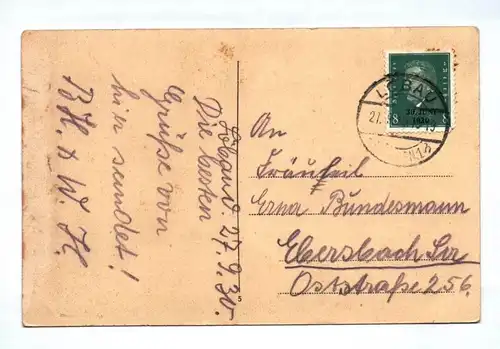 Löbau d. 27.9.30.
Die besten
Grüße von
hier sendet!
B.H. & W. H.
An
Fräulein
Erna Bundesmann
Ebersbach Sa
Oststraße 256.
LÖBAU
27.
8 8
30. JUNI
1930
5